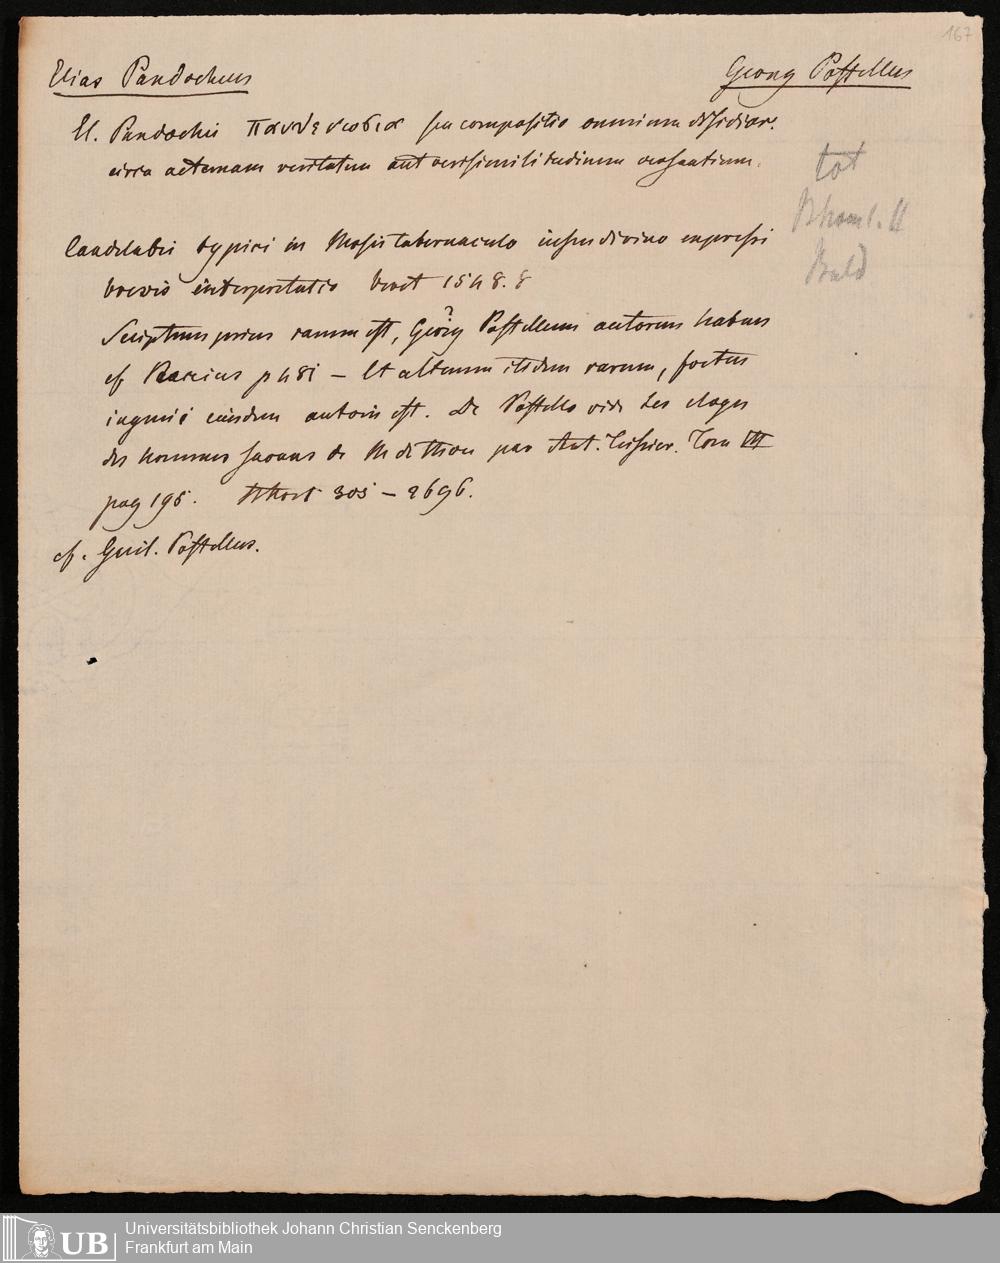 167
Elias Pandocheus
Georg Postellus
El. Pandochei Πανθενωσια seu compositio omnium dissidior.
circa aeternam veritatem aut verisimilitudinem versantium.
tot
Candelabri typici in Mosis tabernaculo iussu divino expressi
brevis interpretatio Venet 1548. 8
Scriptum prius rarum est, Georg ? Postellum autorem habens
cf p 481 – Et alterum itidem rarum, foetus
ingenii eiusdem autoris est. De Postello vide Les eloges
des hommes savans de M de Thou par Ant. Teissier. Tom III
pag 195. 303 – 2696.
cf. Guil. Postellus.
UB Universitätsbibliothek Johann Christian Senckenberg
Frankfurt am Main